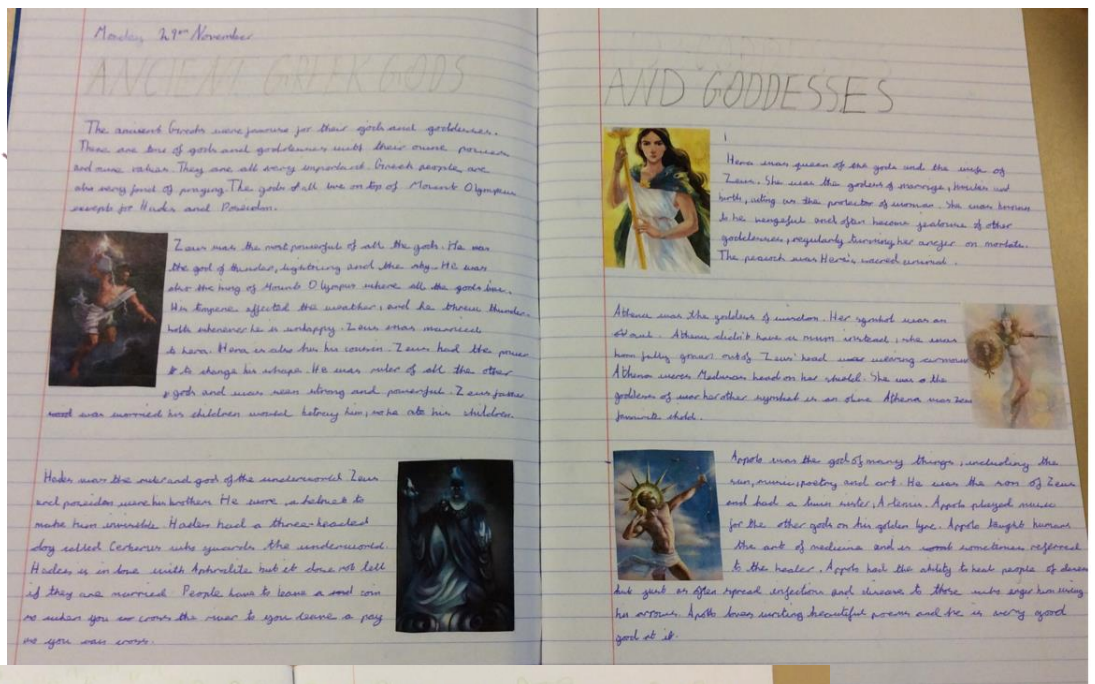 Monday 29th November
ANCIENT GREEK GODS
The ancient Greeks were famous for their gods and goddesses.
There are tons of gods and goddesses with their own powers
and values. They are all very important. Greek people are
also very fond of praying. The gods all live on top of Mount Olympus
except for Hades and Poseidon.
Zeus was the most powerful of all the gods. He was
the god of thunder, lightning and the sky. He was
also the king of Mount Olympus where all the gods live.
His tempers affected the weather, and he threw thunder
bolts whenever he is unhappy. Zeus was married
to hera. Hera is also his cousin. Zeus had the power
to change his shape. He was ruler of all the other
gods and was seen strong and powerful. Zeus father
was worried his children would betray him, so he ate his children.
Hades was the ruler and god of the underworld. Zeus
and poseidon were his brothers. He wore a helmet to
make him invisible. Hades had a three-headed
dog called Cerberus who guards the underworld.
Hades is in love with Aphrodite but it does not tell
if they are married. People have to leave a coin
so when you cross the river to you leave a pay
so you can cross.
AND GODDESSES
Hera was queen of the gods and the wife of
Zeus. She was the goddess of marriage, and
birth, acting as the protector of woman. She was known
to be vengeful and often became jealouse of other
goddesses, regularly turning her anger on mortals.
The peacock was Hera's sacred animal.
Athena was the goddess of wisdom. Her symbol was an
owl. Athena didn't have a mum instead, she was
born fully grown out of Zeus' head wearing armour
Athena wears Medusas head on her shield. She was the
goddess of war her other symbol is an olive. Athena was Zeus
favourite child.
Appolo was the god of many things, including the
sun, music, poetry and art. He was the son of Zeus
and had a twin sister, Artemis. Appolo played music
for the other gods on his golden lyre. Appolo taught humans
the art of medicine and is sometimes referred
to the healer. Appolo had the ability to heal people of disease
but just as often spread infections and disease to those who anger him using
his arrows. Apollo loves writing beautiful poems and he is very good
good at it.